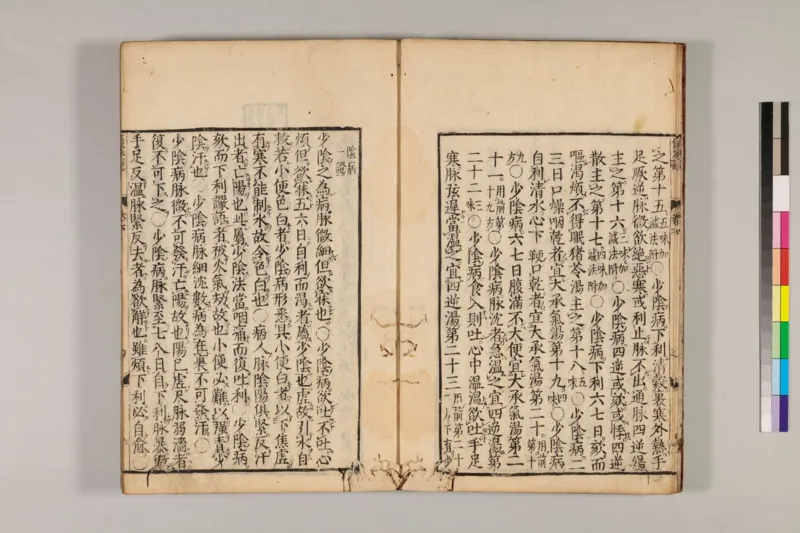 之第十五五味加減法附〇少陰病下利清穀裏寒外熱手
足厥逆脉微欲絶惡寒或利止脉不出通脉四逆湯
主之第十六三味加減法附〇少陰病四逆或欬或悸四逆
散主之第十七四味加減法附〇少陰病下利六七日欬而
嘔渴煩不得眠猪苓湯主之第十八五味〇少陰病二
三日口燥咽乾者宜大承氣湯第十九四味〇少陰病
自利清水心下鞕口乾者宜大承氣湯第二十用前第十
九方〇少陰病六七日腹滿不大便宜大承氣湯第二
十一用前第十九方〇少陰病脉沈者急溫之宜四逆湯第
二十二三味〇少陰病食入則吐心中溫溫欲吐手足
寒脉弦遲當溫之宜四逆湯第二十三用前第二十二方下有少
陰病一證
少陰之為病脉微細但欲寐也〇少陰病欲吐不吐心
煩但欲寐五六日自利而渴者屬少陰也虛故引水自
救若小便色白者少陰病形悉具小便白者以下焦虛
有寒不能制水故令色白也〇病人脉陰陽俱緊反汗
出者亡陽也此屬少陰法當咽痛而復吐利〇少陰病
欬而下利讝語者被火氣劫故也小便必難以強責少
陰汗也〇少陰病脉細沈數病為在裏不可發汗〇
少陰病脉微不可發汗亡陽故也陽已虛尺脉弱濇者
復不可下之〇少陰病脉緊至七八日自下利脉暴微
手足反溫脉緊反去者為欲解也雖煩下利必自愈〇